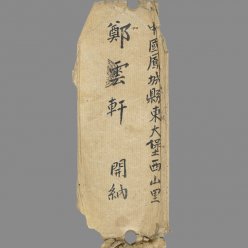 中國鳳城縣東大堡西山里
鄭雲軒 開納